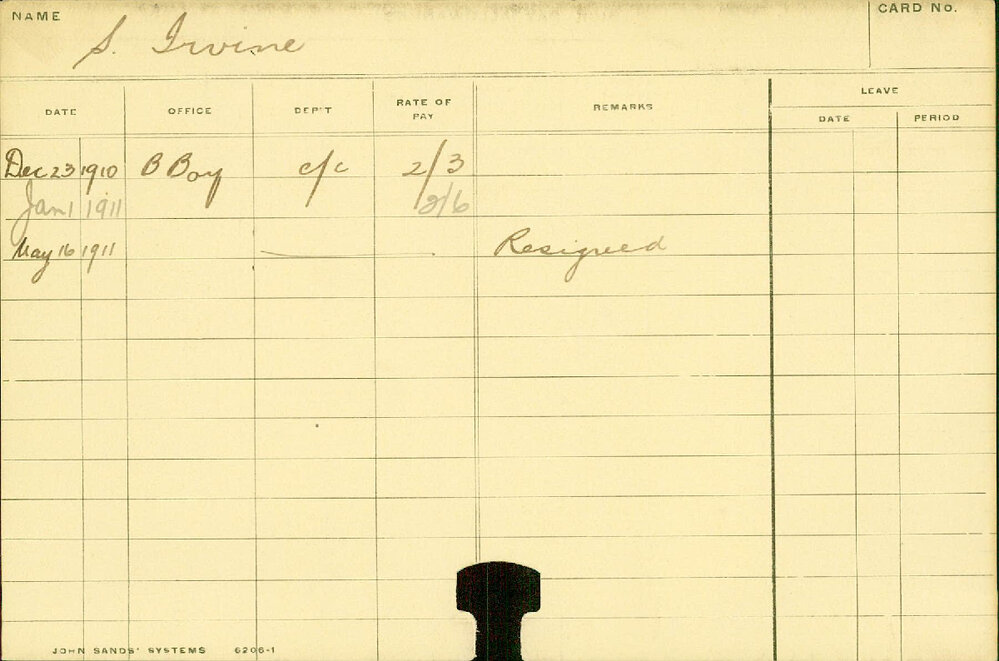 NAME S. Irvine CARD No.
DATE OFFICE DEP'T RATE OF PAY REMARKS LEAVE
DATE PERIOD
Dec 23 1910 B Boy c/c 2/3
Jan 1 1911 2/6
May 16 1911 Resigned
JOHN SANDS' SYSTEMS 6206-1